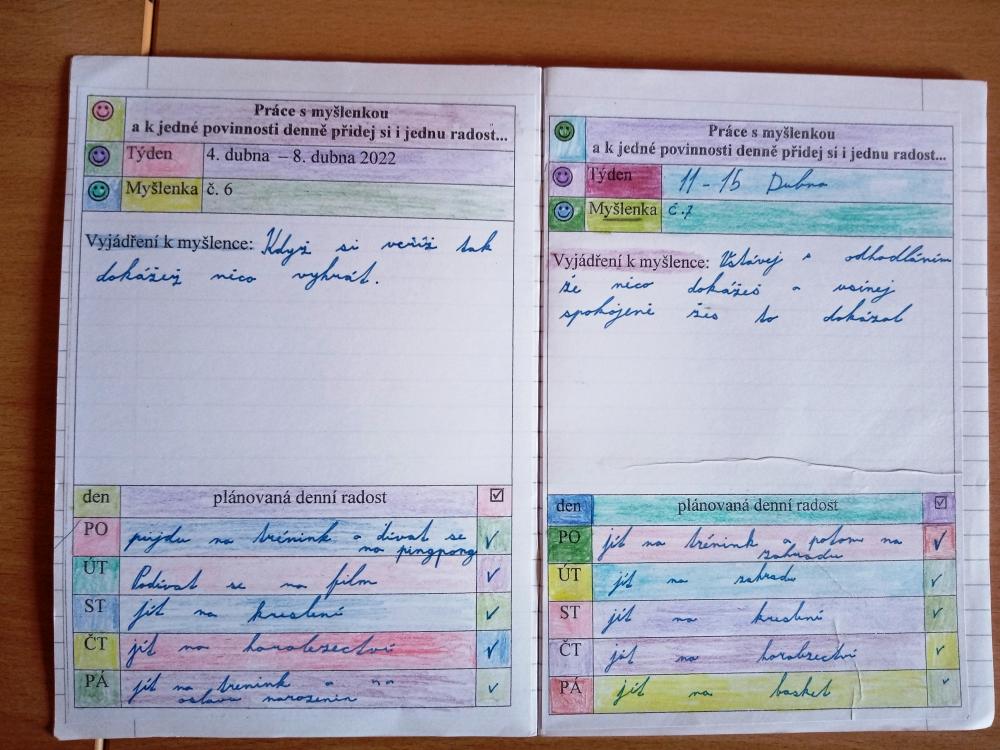 Práce s myšlenkou
a k jedné povinnosti denně přidej si i jednu radost...
Týden 4. dubna – 8. dubna 2022
Myšlenka č. 6
Vyjádření k myšlence: Když si veříž tak
dokážež nico vyhrát.
den plánovaná denní radost ☑
PO pujdu na trénink a dívat se ✓
na pingpong
ÚT Podívat se na film ✓
ST jít na kreslení ✓
ČT jít na horolezectví ✓
PÁ jít na trenink a na ✓
oslavu narozenin
Práce s myšlenkou
a k jedné povinnosti denně přidej si i jednu radost...
Týden 11 - 15 Dubna
Myšlenka č.7
Vyjádření k myšlence: Vstávej s odhodláním
že nico dokážeš a usínej
spokojeně žes to dokázal
den plánovaná denní radost ☑
PO jít na trénink a potom na ✓
zahradu
ÚT jít na zahradu ✓
ST jít na kreslení ✓
ČT jít na horolezectví ✓
PÁ jít na basket ✓